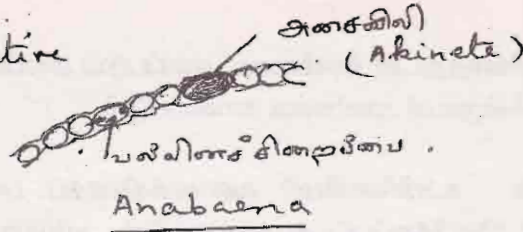 tive
அசைவிலி
(Akinete)
பல்லினச் சிறைப்பை.
Anabaena